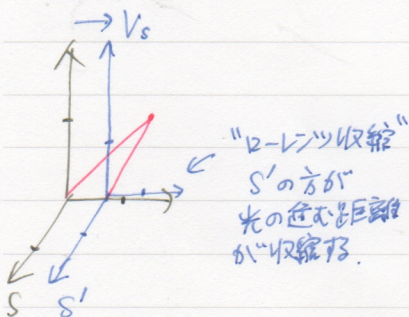 → Vs
"ローレンツ収縮"
S'の方が
光の進む距離
が収縮する.
S
S'